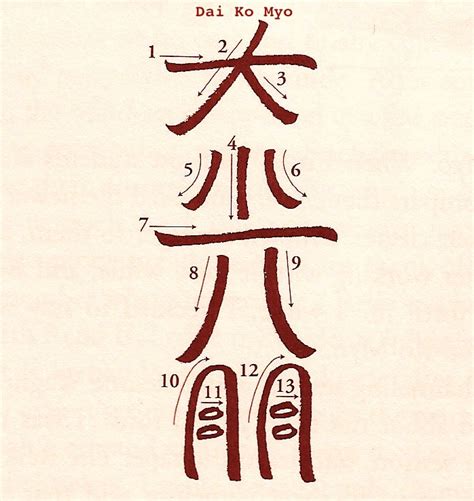 Dai Ko Myo
1 2 3
大
4
5 6
7
8 9
光
10 12
11 13
明